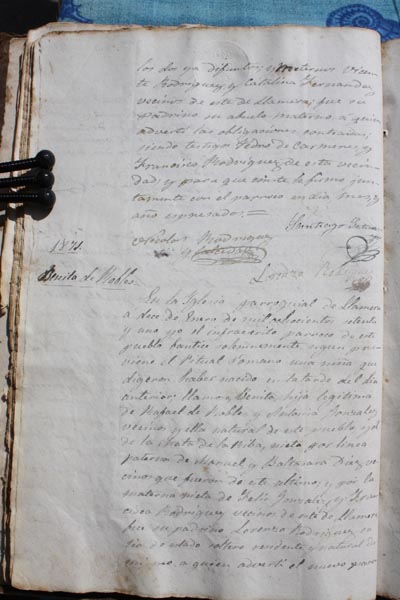 los dos ya difuntos; y maternos Vicen-
te Rodriguez, y Catalina Fernandez
vecinos de este de Llamera; fue su
padrino su abuelo materno, a quien
advertí las obligaciones contraidas;
siendo testigos Pedro de Carmenes, y
Francisco Rodriguez, de esta vecin-
dad; y para que conste lo firmo jun-
tamente con el parroco en dia, mes, y
año espresado:=
Santiago
Nicolas Rodriguez
1871.
Lorenzo Rodriguez
Benita de Robles
En la Iglesia parroquial de Llamera
a doce de Enero de mil ochocientos setenta
y uno yo el infrascrito parroco de este
pueblo bautice solemnemente segun pre-
viene el Ritual Romano una niña que
digeron haber nacido en la tarde del dia
anterior; llamose Benita, hija legitima
de Rafael de Robles, y Antonia Gonzalez,
vecinos y ella natural de este pueblo y el
de la Mata de la Riba, nieta por linea
paterna de Manuel, y Baltasara Diez, ve-
cinos que fueron de este ultimo; y por la
materna nieta de Felix Gonzalez, y Fran-
cisca Rodriguez vecinos de este de Llamera
fue su padrino Lorenzo Rodriguez, su
tio de estado soltero residente y natural de
mismo, a quien advertí el nuevo paren-